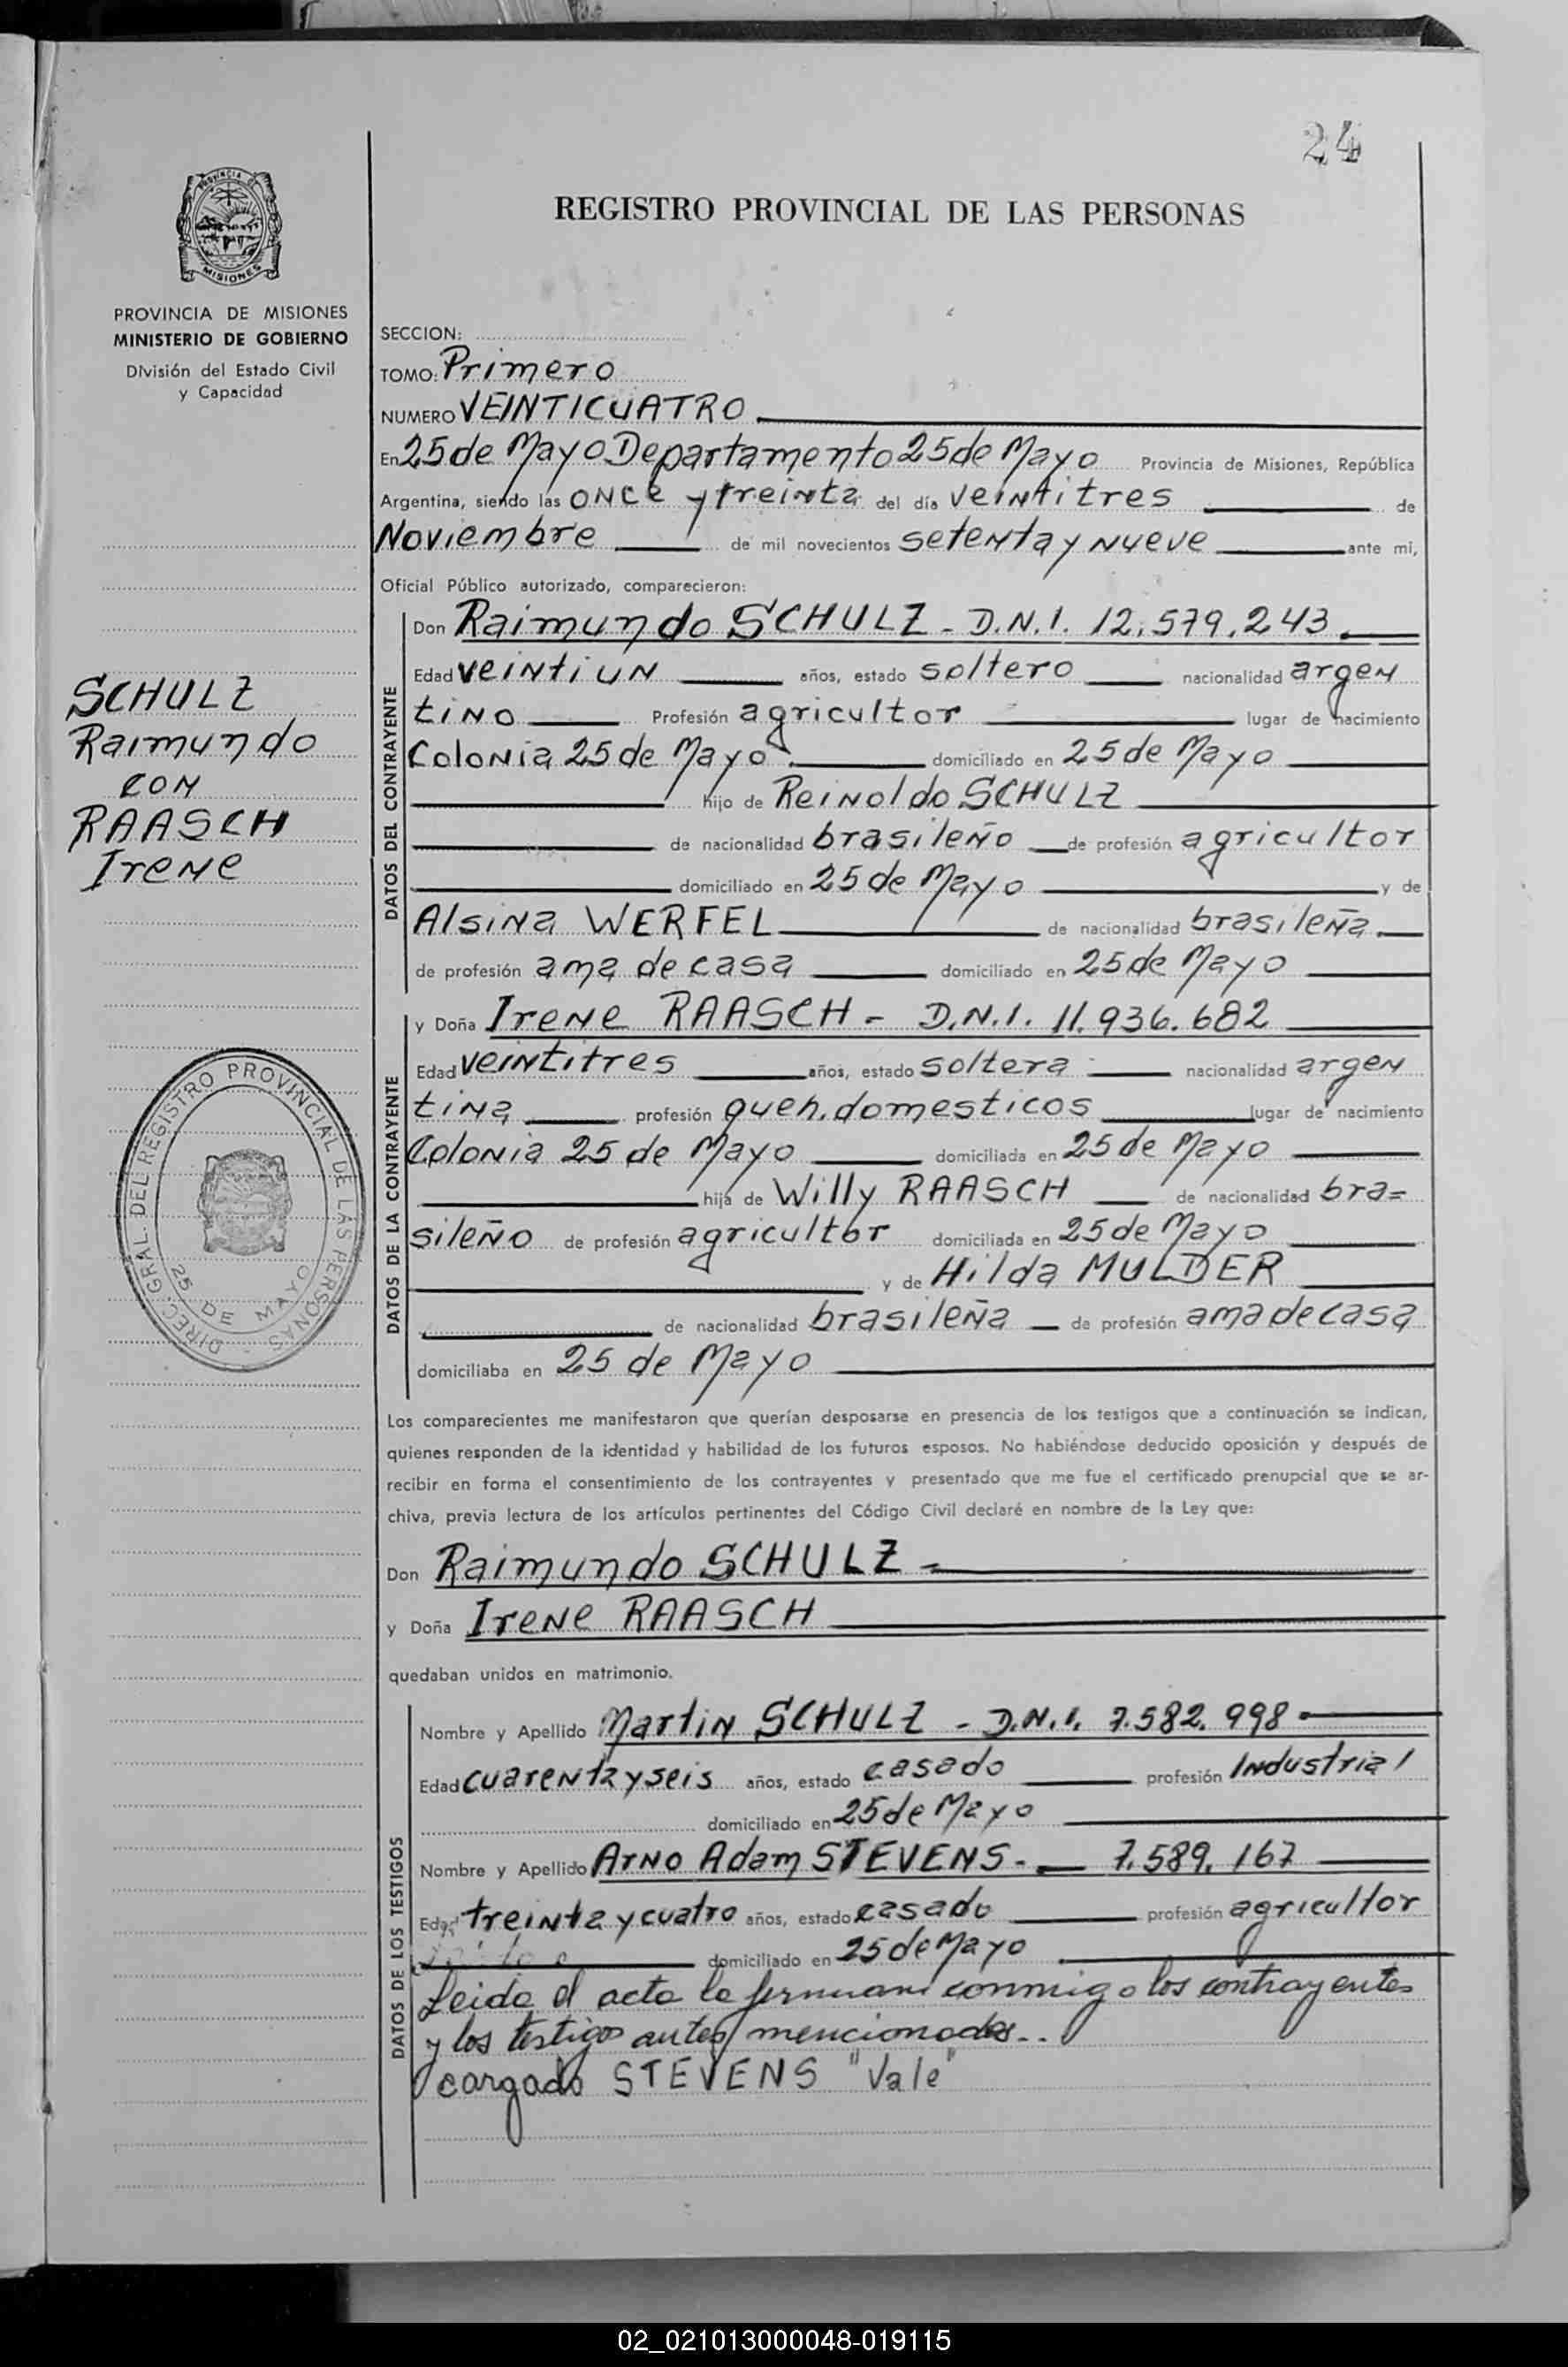 24
REGISTRO PROVINCIAL DE LAS PERSONAS
PROVINCIA DE MISIONES
MINISTERIO DE GOBIERNO
División del Estado Civil
y Capacidad
SCHULZ
Raimundo
CON
RAASCH
Irene
DIREC. GRAL. DEL REGISTRO PROVINCIAL DE LAS PERSONAS
25 DE MAYO
SECCION:
TOMO: Primero
NUMERO VEINTICUATRO
En 25 de Mayo Departamento 25 de Mayo Provincia de Misiones, República
Argentina, siendo las once y treinta del día veintitres de
Noviembre de mil novecientos setenta y nueve ante mi,
Oficial Público autorizado, comparecieron:
DATOS DEL CONTRAYENTE
Don Raimundo SCHULZ - D.N.I. 12.579.243.
Edad veintiun años, estado soltero nacionalidad argen
tino Profesión agricultor lugar de nacimiento
Colonia 25 de Mayo domiciliado en 25 de Mayo
hijo de Reinoldo SCHULZ
de nacionalidad brasileño de profesión agricultor
domiciliado en 25 de Mayo y de
Alsina WERFEL de nacionalidad brasileña
de profesión ama de casa domiciliado en 25 de Mayo
DATOS DE LA CONTRAYENTE
y Doña Irene RAASCH - D.N.I. 11.936.682
Edad veintitres años, estado soltera nacionalidad argen
tina profesión queh. domesticos lugar de nacimiento
Colonia 25 de Mayo domiciliada en 25 de Mayo
hija de Willy RAASCH de nacionalidad bra=
sileño de profesión agricultor domiciliada en 25 de Mayo
y de Hilda MULDER
de nacionalidad brasileña de profesión ama de casa
domiciliaba en 25 de Mayo
Los comparecientes me manifestaron que querían desposarse en presencia de los testigos que a continuación se indican,
quienes responden de la identidad y habilidad de los futuros esposos. No habiéndose deducido oposición y después de
recibir en forma el consentimiento de los contrayentes y presentado que me fue el certificado prenupcial que se ar-
chiva, previa lectura de los artículos pertinentes del Código Civil declaré en nombre de la Ley que:
Don Raimundo SCHULZ
y Doña Irene RAASCH
quedaban unidos en matrimonio.
DATOS DE LOS TESTIGOS
Nombre y Apellido Martin SCHULZ - D.N.I. 7.582.998
Edad cuarenta y seis años, estado casado profesión Industrial
domiciliado en 25 de Mayo
Nombre y Apellido Arno Adam STEVENS - 7.589.167
Edad treinta y cuatro años, estado casado profesión agricultor
domiciliado en 25 de Mayo
Leida el acta la firman conmigo los contrayentes
y los testigos antes mencionados..
cargado STEVENS "Vale"
02_021013000048-019115